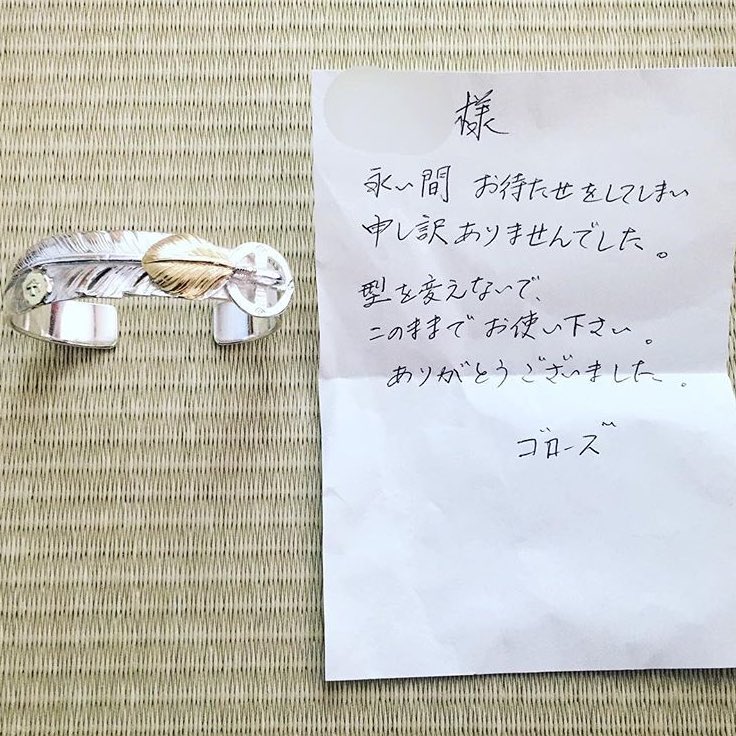 様
永い間 お待たせをしてしまい
申し訳ありませんでした。
型を変えないで、
このままで お使い下さい。
ありがとうございました。
ゴローズ